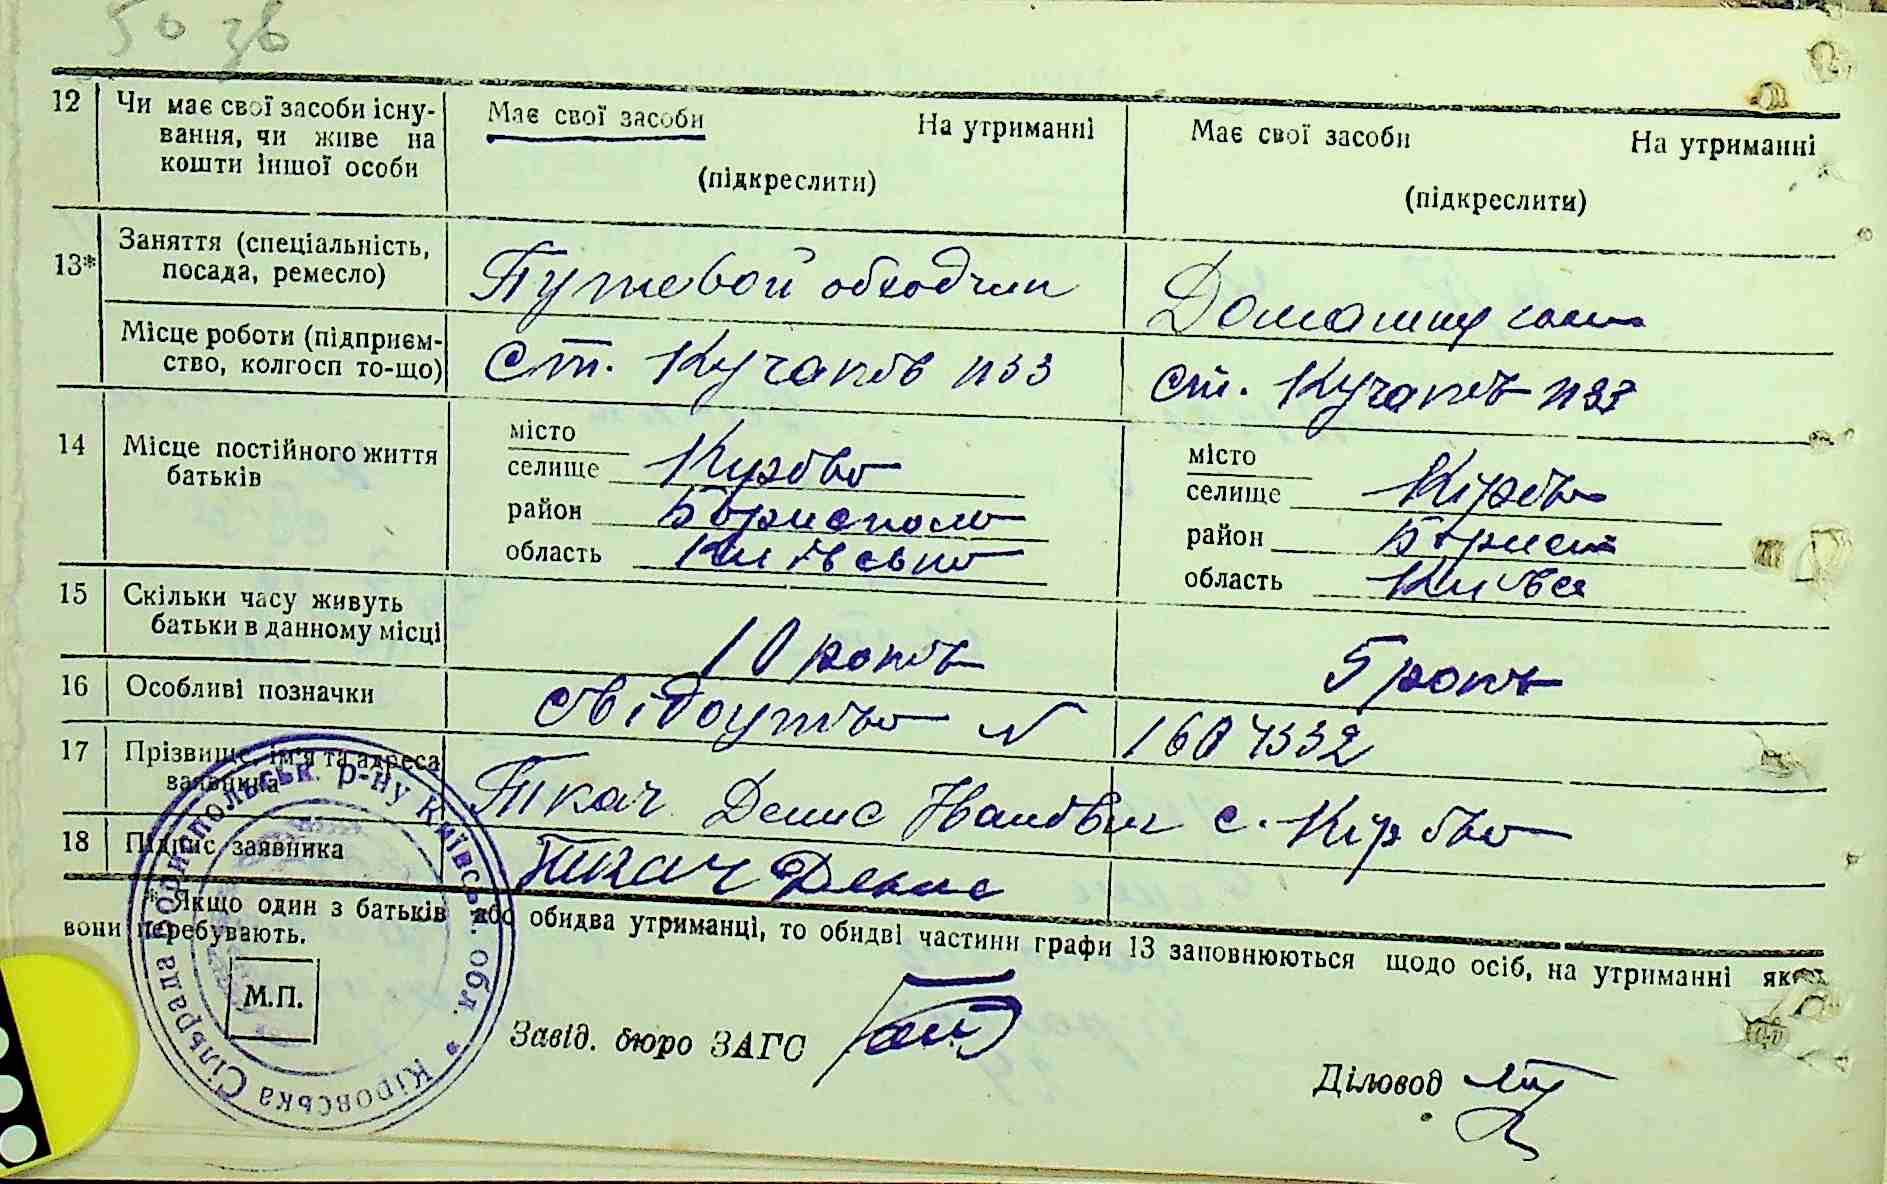 50 зв
12 Чи має свої засоби існу-
вання, чи живе на
кошти іншої особи
Має свої засоби На утриманні
(підкреслити)
Має свої засоби На утриманні
(підкреслити)
13* Заняття (спеціальність,
посада, ремесло)
Путевой обходчик
Домашну
Місце роботи (підприєм-
ство, колгосп то-що)
Ст. Кучаків
ст. Кучаків
14 Місце постійного життя
батьків
місто
селище
район
область
місто
селище Кірово
район
область
15 Скільки часу живуть
батьки в данному місці
10 років
5 років
16 Особливі позначки
свідоцтво N
17 Прізвище, ім'я та адреса
заявника
Ткач Денис Іванович с. Кірово
18 Підпис заявника
Ткач Денис
* Якщо один з батьків або обидва утриманці, то обидві частини графи 13 заповнюються щодо осіб, на утриманні яких
вони перебувають.
М.П.
Завід. бюро ЗАГС
Діловод
Кіровська Сільрада Бориспольськ. р-ну Київськ. обл.